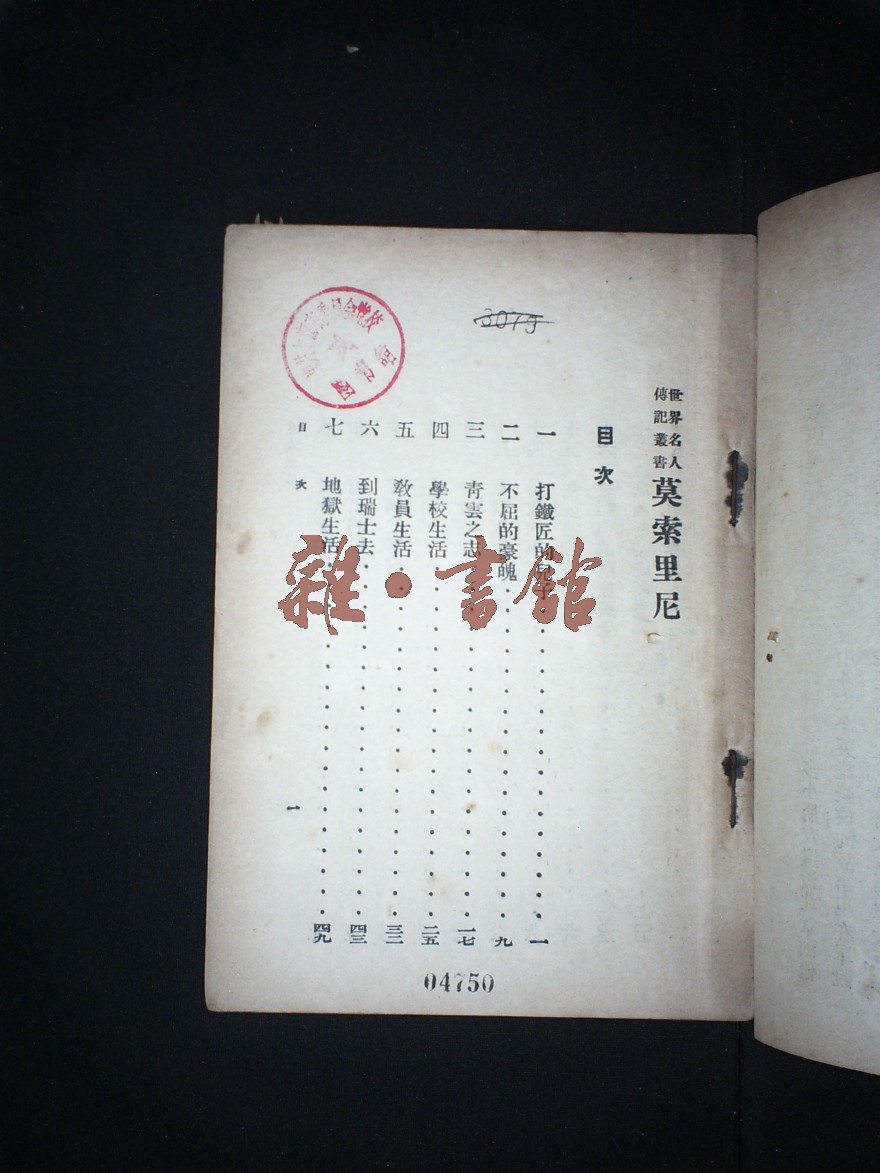 世界名人
傳記叢書
莫索里尼
目次
一 打鐵匠的兒子 一
二 不屈的豪魄 九
三 青雲之志 一七
四 學校生活 二五
五 敎員生活 三三
六 到瑞士去 四三
七 地獄生活 四九
目次 一
3075
圖書館
04750
雜·書館